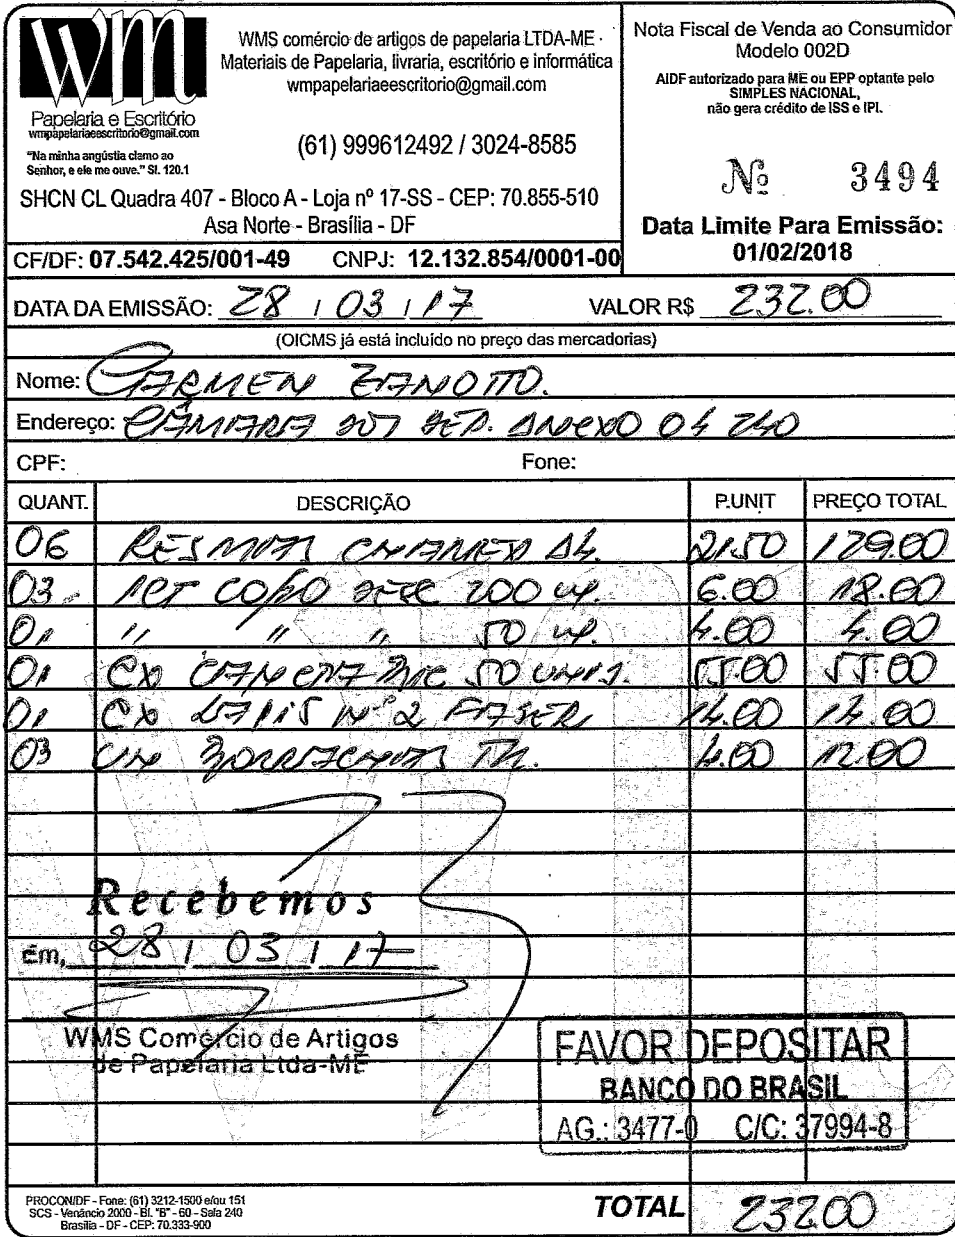 wm
Papelaria e Escritório
wmpapelariaeescritorio@gmail.com
"Na minha angústia clamo ao
Senhor, e ele me ouve." Sl. 120.1
WMS comércio de artigos de papelaria LTDA-ME
Materiais de Papelaria, livraria, escritório e informática
wmpapelariaeescritorio@gmail.com
(61) 999612492 / 3024-8585
SHCN CL Quadra 407 - Bloco A - Loja nº 17-SS - CEP: 70.855-510
Asa Norte - Brasília - DF
CF/DF: 07.542.425/001-49 CNPJ: 12.132.854/0001-00
Nota Fiscal de Venda ao Consumidor
Modelo 002D
AIDF autorizado para ME ou EPP optante pelo
SIMPLES NACIONAL,
não gera crédito de ISS e IPI.
Nº 3494
Data Limite Para Emissão:
01/02/2018
DATA DA EMISSÃO: 28 / 03 / 17 VALOR R$ 232.00
(OICMS já está incluído no preço das mercadorias)
Nome: CARMEN ZANOTTO.
Endereço: CÂMARA DOS DEP. ANEXO 04 240
CPF: Fone:
QUANT. DESCRIÇÃO P.UNIT PREÇO TOTAL
06 RESMAS CHAMEX A4. 21.50 129.00
03 PCT COPO DESC 200 ML. 6.00 18.00
01 " " " 50 ML. 4.00 4.00
01 CX CANETA BIC 50 UNIS. 55.00 55.00
01 CX LAPIS Nº 2 FABER 14.00 14.00
03 UN BORRACHAS 4.00 12.00
Recebemos
Em, 28 / 03 / 17
WMS Comércio de Artigos
de Papelaria Ltda-ME
FAVOR DEPOSITAR
BANCO DO BRASIL
AG.: 3477-0 C/C: 37994-8
PROCON/DF - Fone: (61) 3212-1500 e/ou 151
SCS - Venâncio 2000 - Bl. "B" - 60 - Sala 240
Brasília - DF - CEP: 70.333-900
TOTAL 232.00